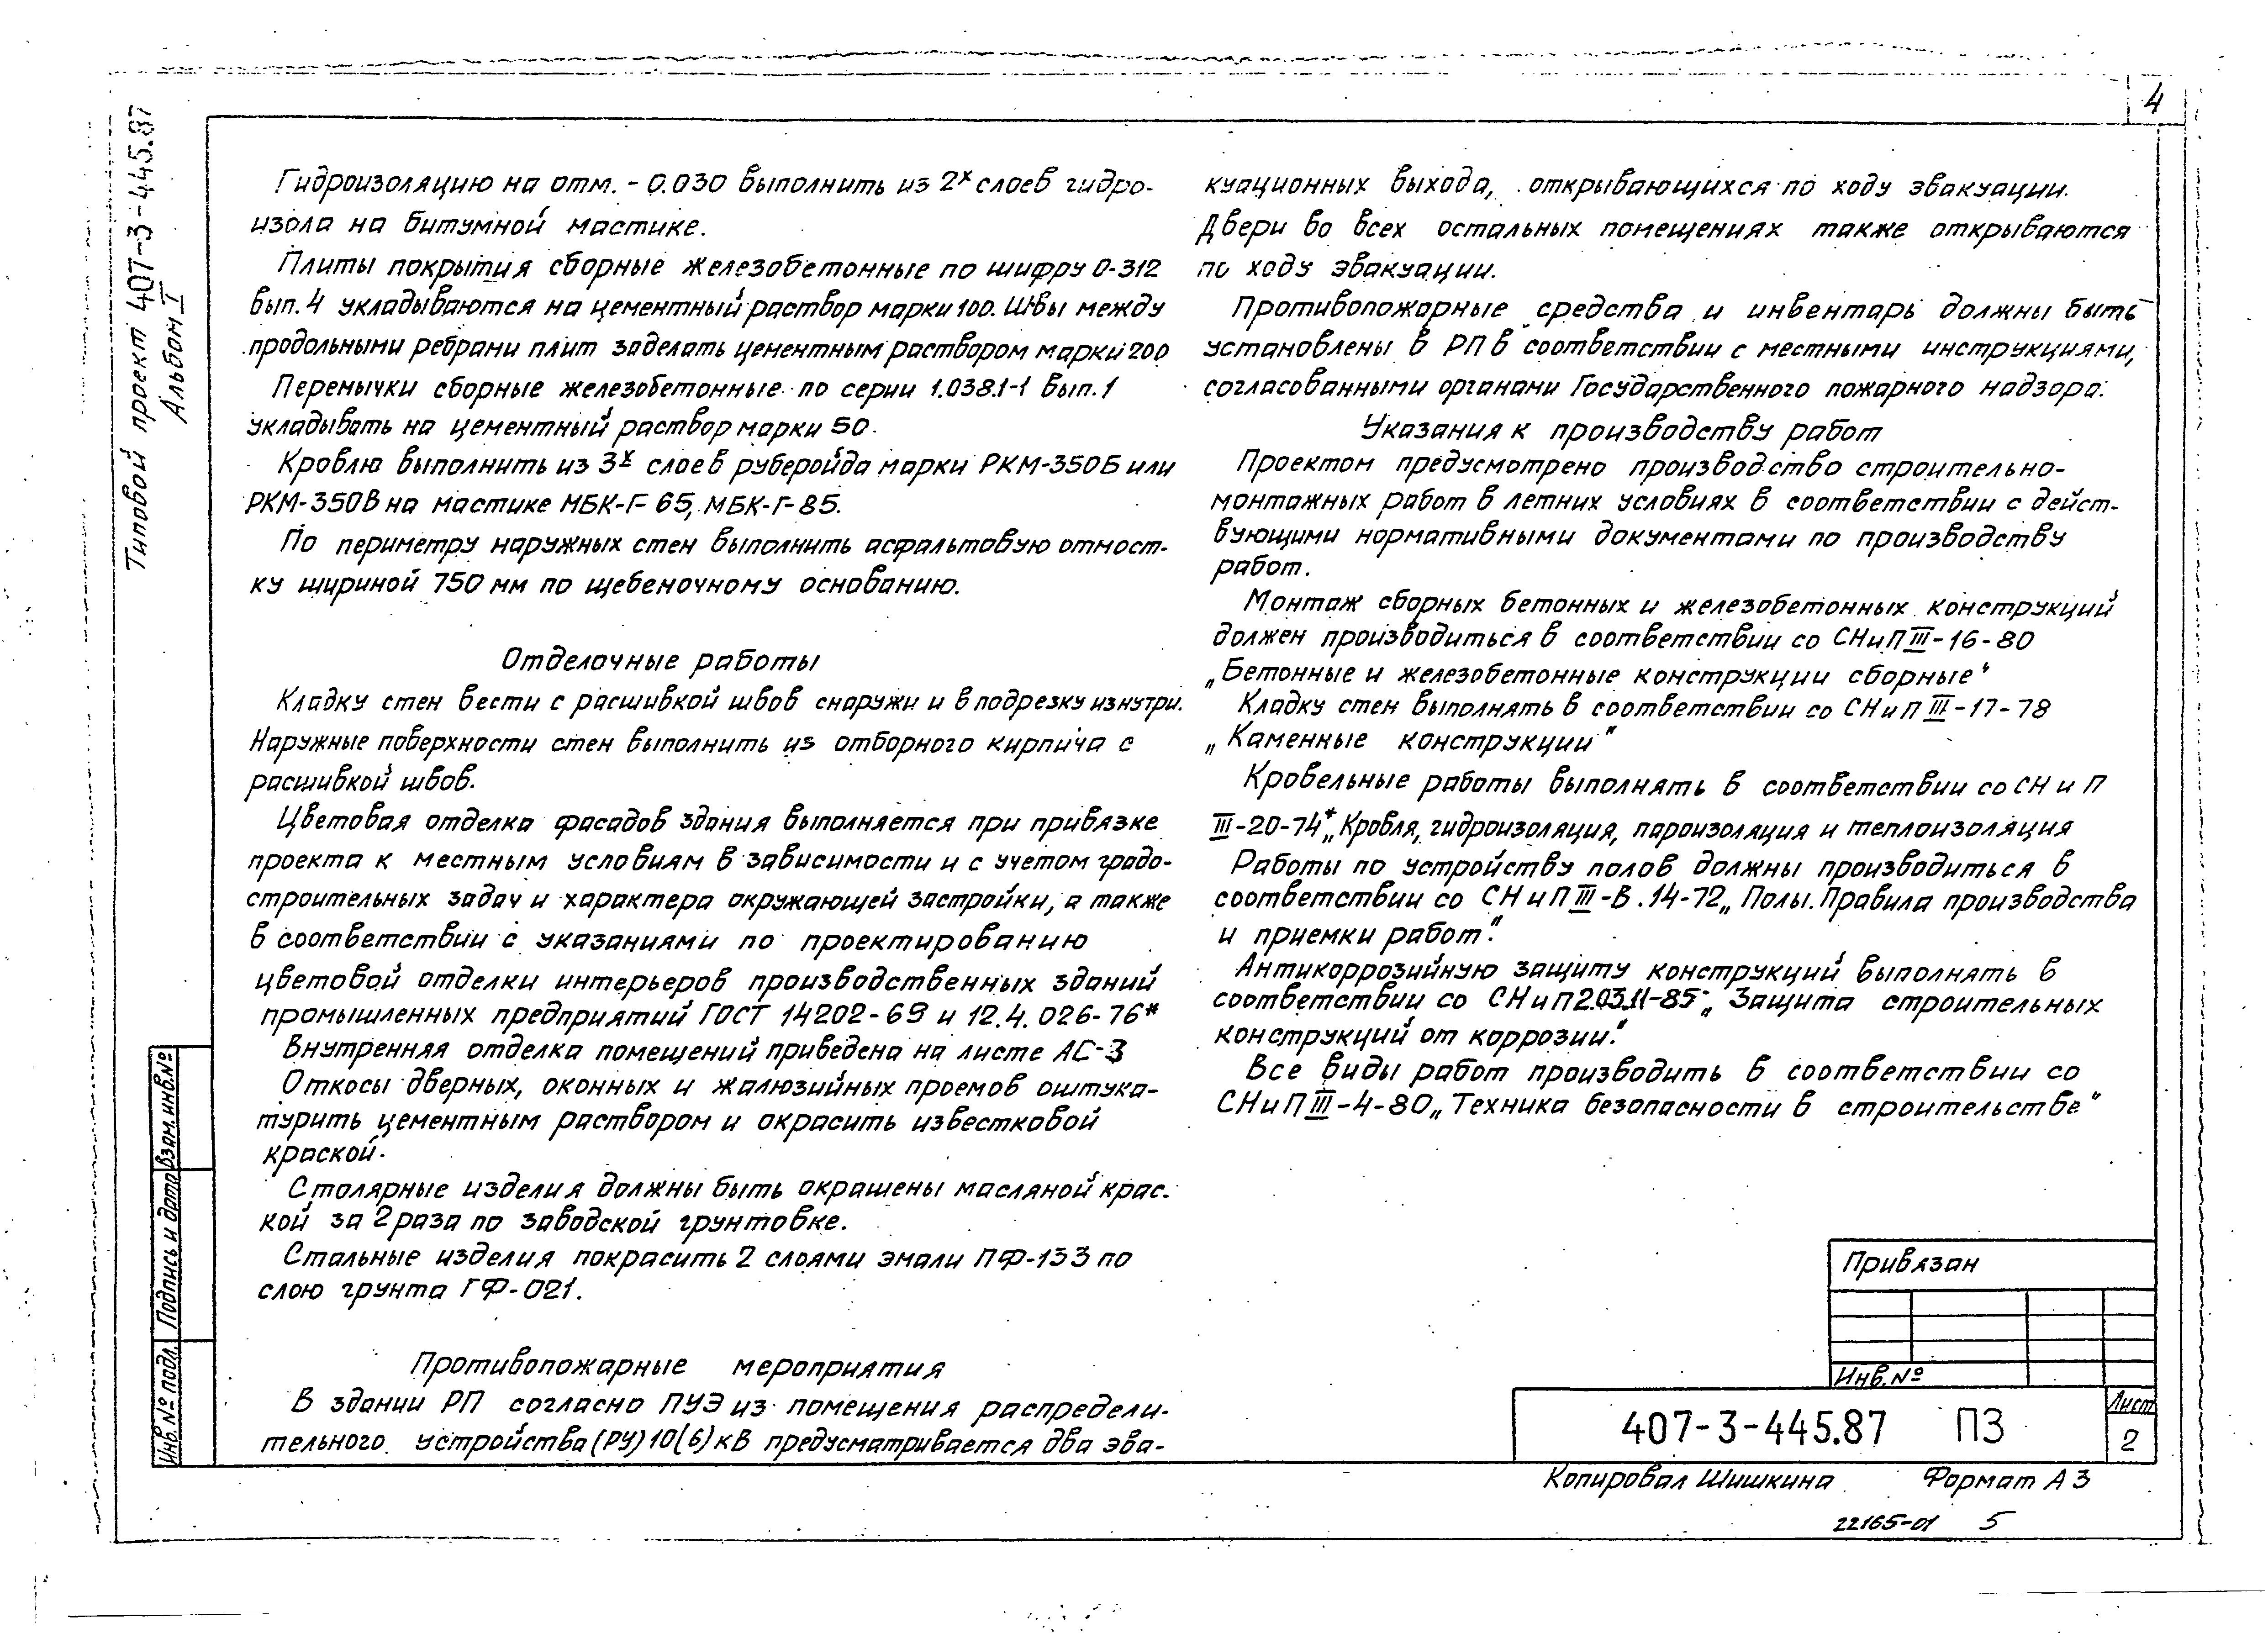 4
Типовой проект 407-3-445.87
Альбом I
Гидроизоляцию на отм. - 0.030 выполнить из 2х слоев гидро-
изола на битумной мастике.
Плиты покрытия сборные железобетонные по шифру 0-312
вып. 4 укладываются на цементный раствор марки 100. Швы между
продольными ребрами плит заделать цементным раствором марки 200
Перемычки сборные железобетонные по серии 1.038.1-1 вып. 1
укладывать на цементный раствор марки 50.
Кровлю выполнить из 3х слоев рубероида марки РКМ-350Б или
РКМ-350В на мастике МБК-Г-65, МБК-Г-85.
По периметру наружных стен выполнить асфальтовую отмост-
ку шириной 750 мм по щебеночному основанию.
Отделочные работы
Кладку стен вести с расшивкой швов снаружи и в подрезку изнутри.
Наружные поверхности стен выполнить из отборного кирпича с
расшивкой швов.
Цветовая отделка фасадов здания выполняется при привязке
проекта к местным условиям в зависимости и с учетом градо-
строительных задач и характера окружающей застройки, а также
в соответствии с указаниями по проектированию
цветовой отделки интерьеров производственных зданий
промышленных предприятий ГОСТ 14202-69 и 12.4.026-76*
Внутренняя отделка помещений приведена на листе АС-3
Откосы дверных, оконных и жалюзийных проемов оштука-
турить цементным раствором и окрасить известковой
краской.
Столярные изделия должны быть окрашены масляной крас-
кой за 2 раза по заводской грунтовке.
Стальные изделия покрасить 2 слоями эмали ПФ-133 по
слою грунта ГФ-021.
Противопожарные мероприятия
В здании РП согласно ПУЭ из помещения распредели-
тельного устройства (РУ) 10(6) кВ предусматривается два эва-
куационных выхода, открывающихся по ходу эвакуации.
Двери во всех остальных помещениях также открываются
по ходу эвакуации.
Противопожарные средства и инвентарь должны быть
установлены в РП в соответствии с местными инструкциями,
согласованными органами Государственного пожарного надзора.
Указания к производству работ
Проектом предусмотрено производство строительно-
монтажных работ в летних условиях в соответствии с дейст-
вующими нормативными документами по производству
работ.
Монтаж сборных бетонных и железобетонных конструкций
должен производиться в соответствии со СНиП III-16-80
„Бетонные и железобетонные конструкции сборные"
Кладку стен выполнять в соответствии со СНиП III-17-78
„Каменные конструкции"
Кровельные работы выполнять в соответствии со СНиП
III-20-74* „Кровля, гидроизоляция, пароизоляция и теплоизоляция
Работы по устройству полов должны производиться в
соответствии со СНиП III-В.14-72 „Полы. Правила производства
и приемки работ".
Антикоррозийную защиту конструкций выполнять в
соответствии со СНиП 2.03.11-85 „Защита строительных
конструкций от коррозии".
Все виды работ производить в соответствии со
СНиП III-4-80 „Техника безопасности в строительстве"
Взам. инв. №
Подпись и дата
Инв. № подл.
Привязан
Инв. №
407-3-445.87 ПЗ
Лист
2
Копировал Шишкина Формат А3
22165-01 5